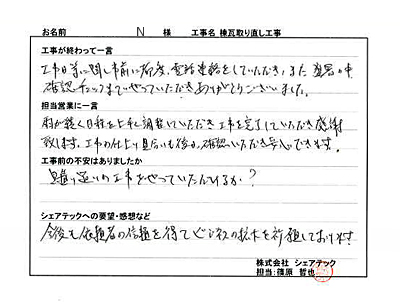 お名前 N 様 工事名 棟瓦取り直し工事
工事が終わって一言
工事日等に関し事前に都度、電話連絡をしていただき、また
確認チェックまでやっていただきありがとうございました。
担当営業に一言
雨が続く日程を上手に調整いただき工事を完了していただき感謝
致します。工事の仕上り具合いも後から確認いただき安心できます。
工事前の不安はありましたか
見積り通りの工事をやっていただけるか？
シェアテックへの要望・感想など
今後も依頼者の信頼を得てビジネスの拡大を祈願しております
株式会社 シェアテック
担当：篠原 哲也